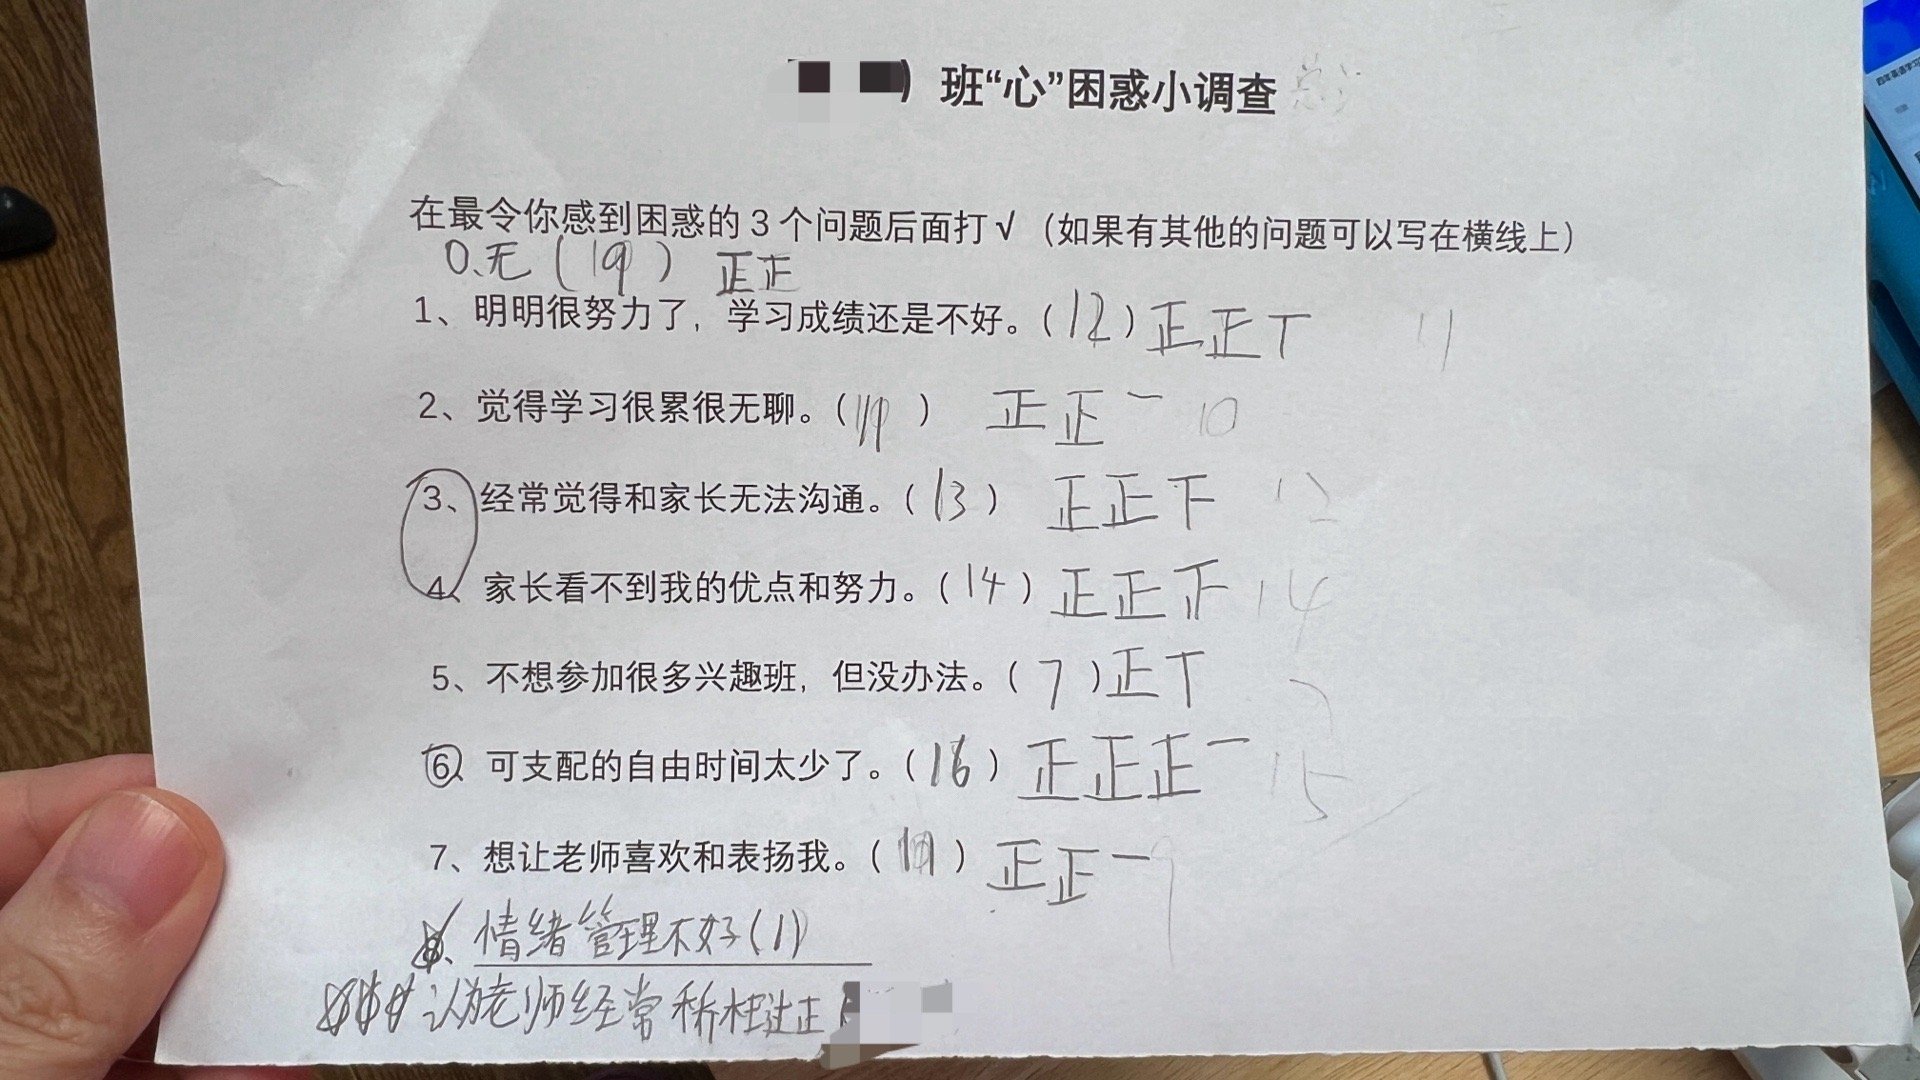 班“心”困惑小调查
在最令你感到困惑的 3 个问题后面打√（如果有其他的问题可以写在横线上）
0、无（ ） 正正
1、明明很努力了，学习成绩还是不好。（12）正正丅 11
2、觉得学习很累很无聊。（ ） 正正一 10
3、经常觉得和家长无法沟通。（13） 正正下
4、家长看不到我的优点和努力。（14）正正正 14
5、不想参加很多兴趣班，但没办法。（7）正丅
6、可支配的自由时间太少了。（16）正正正一 15
7、想让老师喜欢和表扬我。（ ） 正正一 9
情绪管理不好（1）
认为老师经常矫枉过正